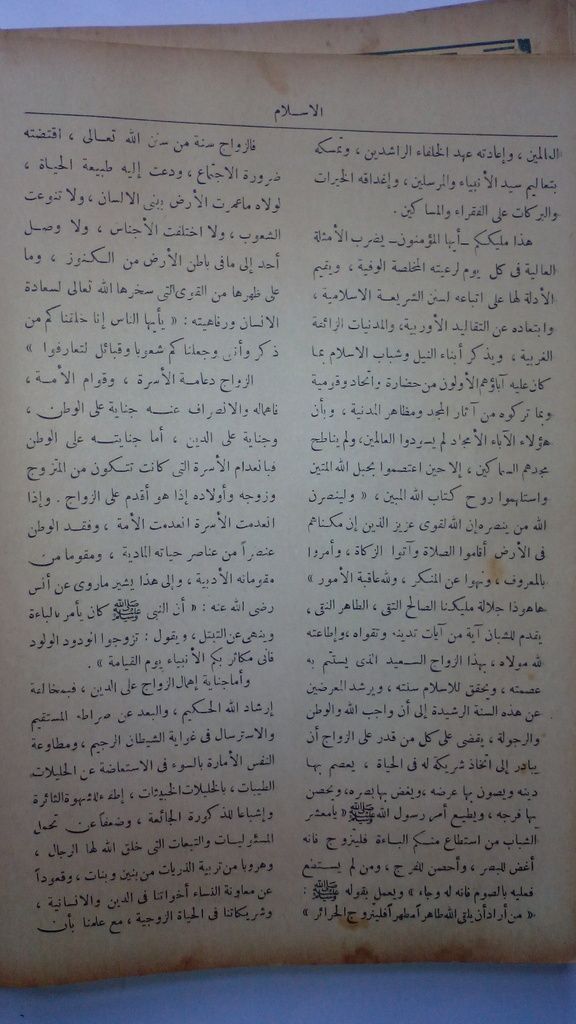 الاسلام
العالمين ، وإعادته عهد الخلفاء الراشدين ، وتمسكه
بتعاليم سيد الأنبياء والمرسلين ، وإغداقه الخيرات
والبركات على الفقراء والمساكين .
هذا مليككم ــ أيها المؤمنون ــ يضرب الأمثلة
العالية فى كل يوم لرعيته المخلصة الوفية ، ويقيم
الأدلة لها على اتباعه لسنن الشريعة الاسلامية ،
وابتعاده عن التقاليد الأوربية، والمدنيات الزائفة
الغربية ، ويذكر أبناء النيل وشباب الاسلام بما
كان عليه آباؤهم الأولون من حضارة واتحاد وقومية
وبما تركوه من آثار المجد ومظاهر المدنية ، وبأن
هؤلاء الآباء الأمجاد لم يسودوا العالمين، ولم يناطح
مجدهم السماكين ، إلا حين اعتصموا بحبل الله المتين
واستلهموا روح كتاب الله المبين ، « ولينصرن
الله من ينصره إن الله لقوى عزيز الذين إن مكناهم
فى الأرض أقاموا الصلاة وآتوا الزكاة ، وأمروا
بالمعروف ، ونهوا عن المنكر ، ولله عاقبة الأمور »
هاهوذا جلالة مليكنا الصالح التقى ، الطاهر النقى ،
يقدم للشبان آية من آيات تدينه وتقواه ،وإطاعته
لله مولاه ، بهذا الزواج السعيد الذى يستتم به
عصمته ، ويحقق للاسلام سنته ، ويرشد المعرضين
عن هذه السنة الرشيدة إلى أن واجب الله والوطن
والرجولة ، يقضى على كل من قدر على الزواج أن
يبادر إلى اتخاذ شريكة له فى الحياة ، يعصم بها
دينه ويصون بها عرضه ،ويغض بها بصره، ويحصن
بها فرجه ، ويطيع أمر رسول الله ﷺ « يامعشر
الشباب من استطاع منكم الباءة فليتزوج فانه
أغض للبصر ، وأحصن للفرج ، ومن لم يستطع
فعليه بالصوم فانه له وجاء » ويعمل بقوله ﷺ :
« من أراد أن يلقى الله طاهراً مطهراً فليتزوج الحرائر »
فالزواج سنة من سنن الله تعالى ، اقتضته
ضرورة الاجتماع ، ودعت إليه طبيعة الحياة ،
لولاه ماعمرت الأرض ببنى الانسان ، ولا تنوعت
الشعوب ، ولا اختلفت الأجناس ، ولا وصل
أحد إلى مافى باطن الأرض من الكنوز ، وما
على ظهرها من القوى التى سخرها الله تعالى لسعادة
الانسان ورفاهيته : « يأيها الناس إنا خلقناكم من
ذكر وأنثى وجعلناكم شعوبا وقبائل لتعارفوا »
الزواج دعامة الأسرة ، وقوام الأمة ،
فاهماله والانصراف عنه جناية على الوطن ،
وجناية على الدين ، أما جنايته على الوطن
فبانعدام الأسرة التى كانت تتكون من المتزوج
وزوجه وأولاده إذا هو أقدم على الزواج . وإذا
انعدمت الأسرة انعدمت الأمة ، وفقد الوطن
عنصراً من عناصر حياته المادية ، ومقوما من
مقوماته الأدبية ، وإلى هذا يشير ماروى عن أنس
رضى الله عنه : « أن النبى ﷺ كان يأمر بالباءة
وينهى عن التبتل ، ويقول : تزوجوا الودود الولود
فانى مكاثر بكم الأنبياء يوم القيامة » .
وأما جناية إهمال الزواج على الدين ، فبمخالفة
إرشاد الله الحكيم ، والبعد عن صراطه المستقيم
والاسترسال فى غواية الشيطان الرجيم ، ومطاوعة
النفس الأمارة بالسوء فى الاستعاضة عن الحليلات
الطيبات ، بالخليلات الخبيثات ، إطفاء لشهوة الثائرة
وإشباعا للذكورة الجائعة ، وضعفا عن تحمل
المسئوليات والتبعات التى خلق الله لها الرجال ،
وهروبا من تربية الذريات من بنين وبنات ، وقعوداً
عن معاونة النساء أخواتنا فى الدين والانسانية ،
وشريكاتنا فى الحياة الزوجية ، مع علمنا بأن